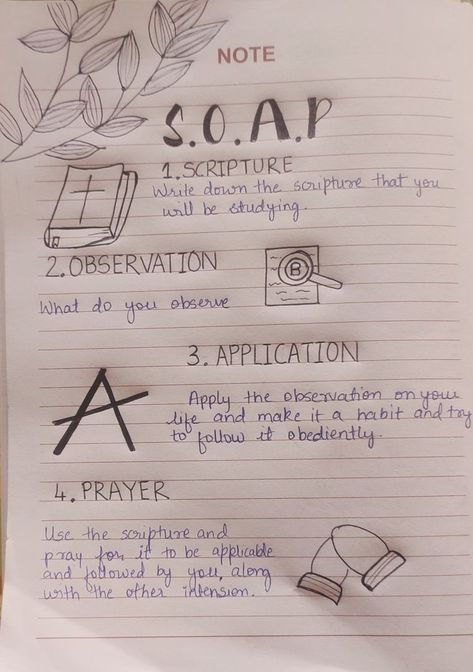 NOTE
S.O.A.P
1. SCRIPTURE
Write down the scripture that you
will be studying.
2. OBSERVATION
B
What do you observe
3. APPLICATION
A
Apply the observation on your
life and make it a habit and try
to follow it obediently.
4. PRAYER
Use the scripture and
pray for it to be applicable
and followed by you, along
with the other intension.